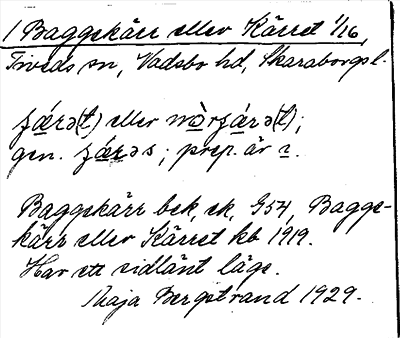 1 Baggekärr eller Kärret 1/16,
Tiveds sn, Vadsbo hd, Skaraborgs l.
ʃǽrə(t) eller nòrʃǽrə(t);
gen. ʃǽrəs; prep. är ı.
Baggekärr bek, ek, G54, Bagge-
kärr eller Kärret kb 1919.
Har ett sidlänt läge.
Maja Bergstrand 1929.